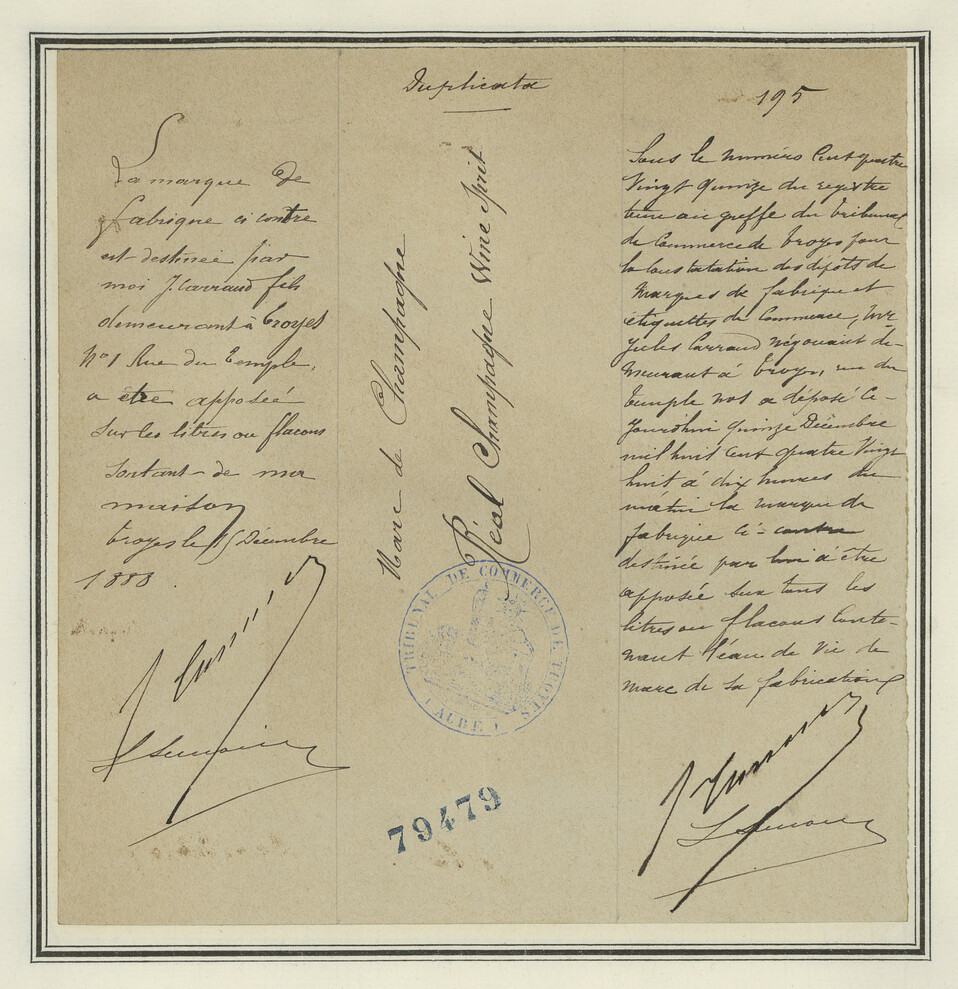 Duplicata
La marque de
fabrique ci contre
est destinée par
moi J. Carraud fils
demeurant à Troyes
No 1 Rue du Temple,
a etre apposéé
sur les litres ou flacons
sortant de ma
maison
Troyes le 15 Décembre
1888.
Marc de Champagne
Réal Champagne Wine Spirit
TRIBUNAL DE COMMERCE DE TROYES
(AUBE)
79479
195
Sous le numéro Cent quatre
Vingt Quinze du registre
tenu au greffe du tribunal
de Commerce de Troyes pour
la Constatation des dépôts de
Marques de fabrique et
étiquettes de Commerce, Mr
Jules Carraud négociant de-
meurant à Troyes, rue du
temple no1 a déposé Ce-
jourdhui quinze Décembre
mil huit cent quatre Vingt
huit à dix heures du
matin la marque de
fabrique ci-contre
destinée par lui à être
apposée sur tous les
litres ou flacons Conte-
nant l'eau de vie de
marc de sa fabrication